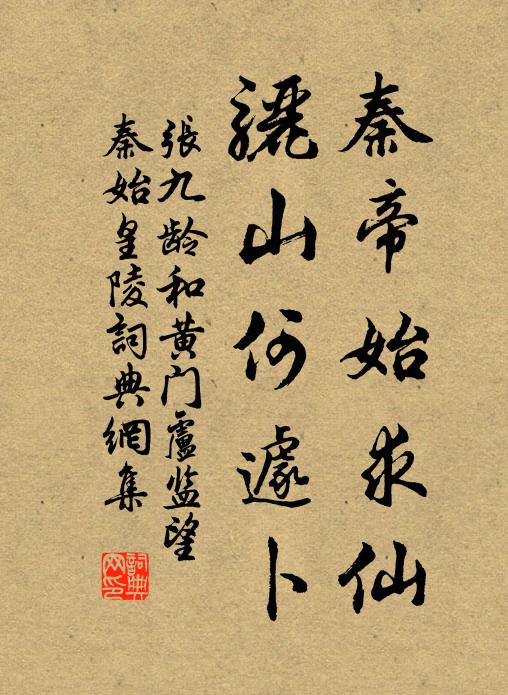 秦帝始求仙
骊山何遽卜
張九龄和黄门盧监望
秦始皇陵詞典網集
詞典
网印